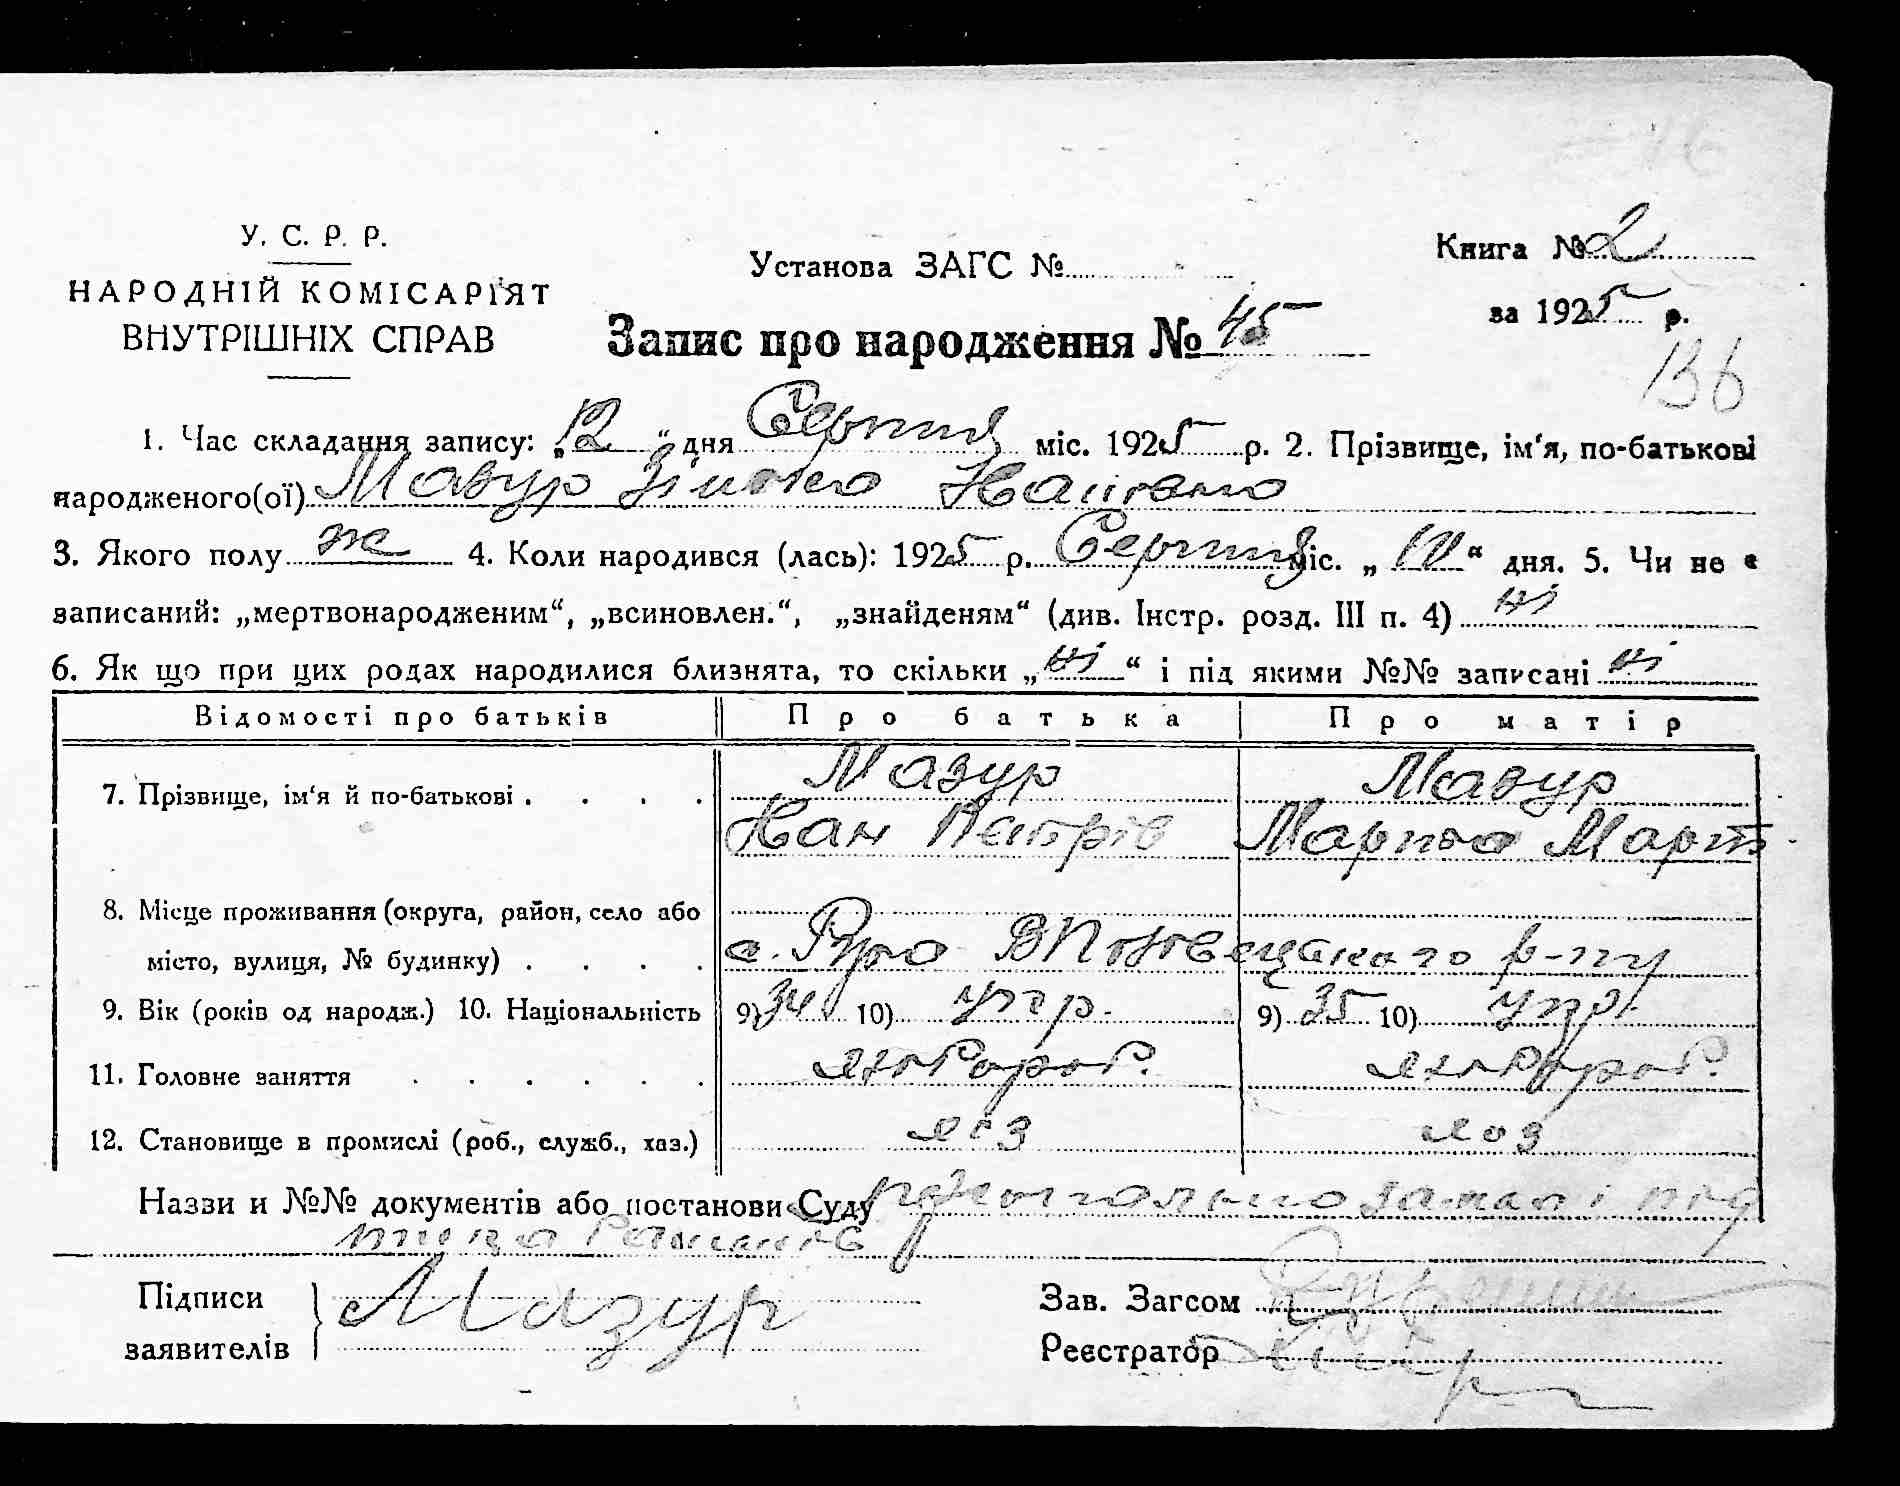 У. С. Р. Р.
НАРОДНІЙ КОМІСАРІЯТ
ВНУТРІШНІХ СПРАВ
Установа ЗАГС №
Книга № 2
за 1925 р.
Запис про народження № 45
136
1. Час складання запису: „12“ дня Серпня міс. 1925 р. 2. Прізвище, ім‘я, по-батькові
народженого(ої) Мазур
3. Якого полу ж 4. Коли народився (лась): 1925 р. Серпня міс. „ “ дня. 5. Чи не є
записаний: „мертвонародженим“, „всиновлен.“, „знайденям“ (див. Інстр. розд. III п. 4) ні
6. Як що при цих родах народилися близнята, то скільки „ні“ і під якими №№ записані ні
Відомості про батьків Про батька Про матір
7. Прізвище, ім‘я й по-батькові . . . . Мазур Мазур
Петрів Март
8. Місце проживання (округа, район, село або
місто, вулиця, № будинку) . . . . с.
9. Вік (років од народж.) 10. Національність 9) 34 10) укр. 9) 35 10) укр.
11. Головне заняття . . . . . . хлібороб. хлібороб.
12. Становище в промислі (роб., служб., хаз.)
Назви и №№ документів або постанови Суду
Підписи
заявителів
Мазур
Зав. Загсом
Реєстратор